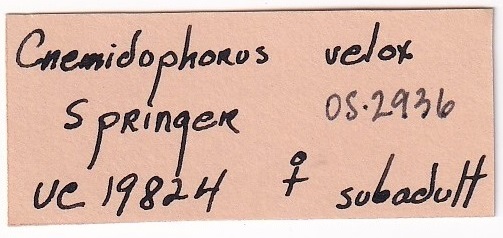 Cnemidophorus velox
Springer OS·2936
UC 19824 ♀ subadult